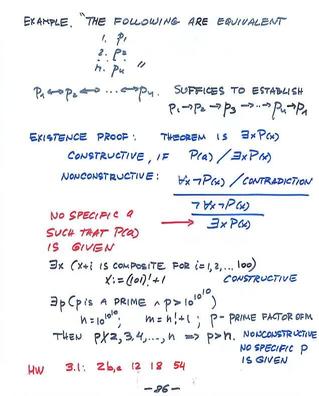 EXAMPLE. "THE FOLLOWING ARE EQUIVALENT
1. p₁
2. p₂
⋮
n. pₙ "
p₁ ↔ p₂ ↔ ... ↔ pₙ. SUFFICES TO ESTABLISH
p₁ → p₂ → p₃ → ... → pₙ → p₁
EXISTENCE PROOF: THEOREM IS ∃x P(x)
CONSTRUCTIVE, IF P(a) / ∃x P(x)
NONCONSTRUCTIVE: ∀x ¬P(x) / CONTRADICTION
¬∀x ¬P(x)
∃x P(x)
NO SPECIFIC a
SUCH THAT P(a)
IS GIVEN
∃x (x+i IS COMPOSITE FOR i=1,2,... 100)
x := (101)! + 1 CONSTRUCTIVE
∃p (p IS A PRIME ∧ p > 10^10^10)
n = 10^10^10; m = n! + 1; p - PRIME FACTOR OF m
THEN p∤2,3,4,..., n ⇒ p > n. NONCONSTRUCTIVE
NO SPECIFIC p
IS GIVEN
HW 3.1: 2b,c 12 18 54
- 86 -